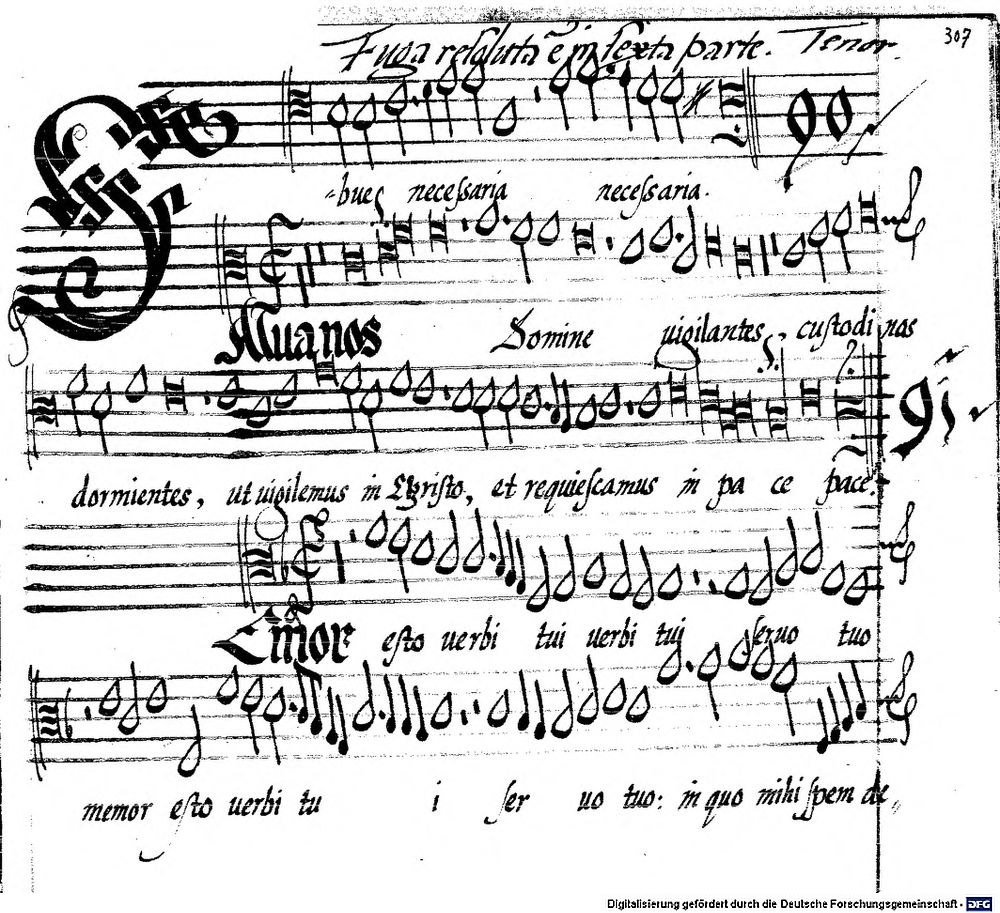 Fuga resoluta ē in sexta parte. Tenor. 307
90
-bus necessaria necessaria.
Salua nos Domine uigilantes, custodi nos
91
dormientes, ut uigilemus in Christo, et requiescamus in pa ce pace.
Memor esto uerbi tui uerbi tui seruo tuo
memor esto uerbi tu i ser uo tuo: in quo mihi spem de„
Digitalisierung gefördert durch die Deutsche Forschungsgemeinschaft - DFG